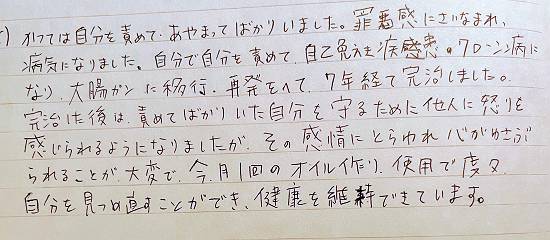 かつては自分を責めて、あやまってばかりいました。罪悪感にさいなまれ、
病気になりました。自分で自分を責めて、自己免疫疾患のクローン病に
なり、大腸ガンに移行、再発をへて、7年経て完治しました。
完治した後は、責めてばかりいた自分を守るために他人に怒りを
感じられるようになりましたが、その感情にとらわれ心がゆさぶ
られることが大変で、今、月1回のオイル作り、使用で度々
自分を見つめ直すことができ、健康を維持できています。